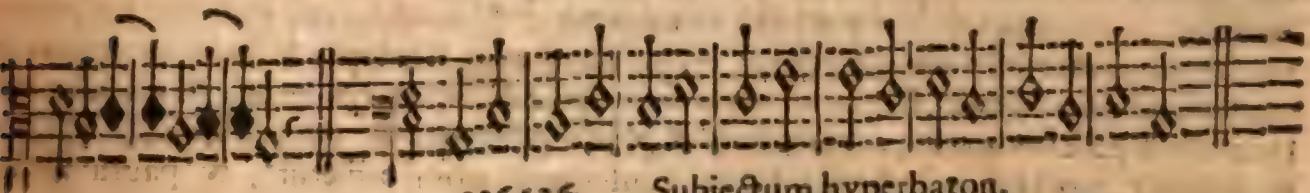 Subiectum hyperbaton.